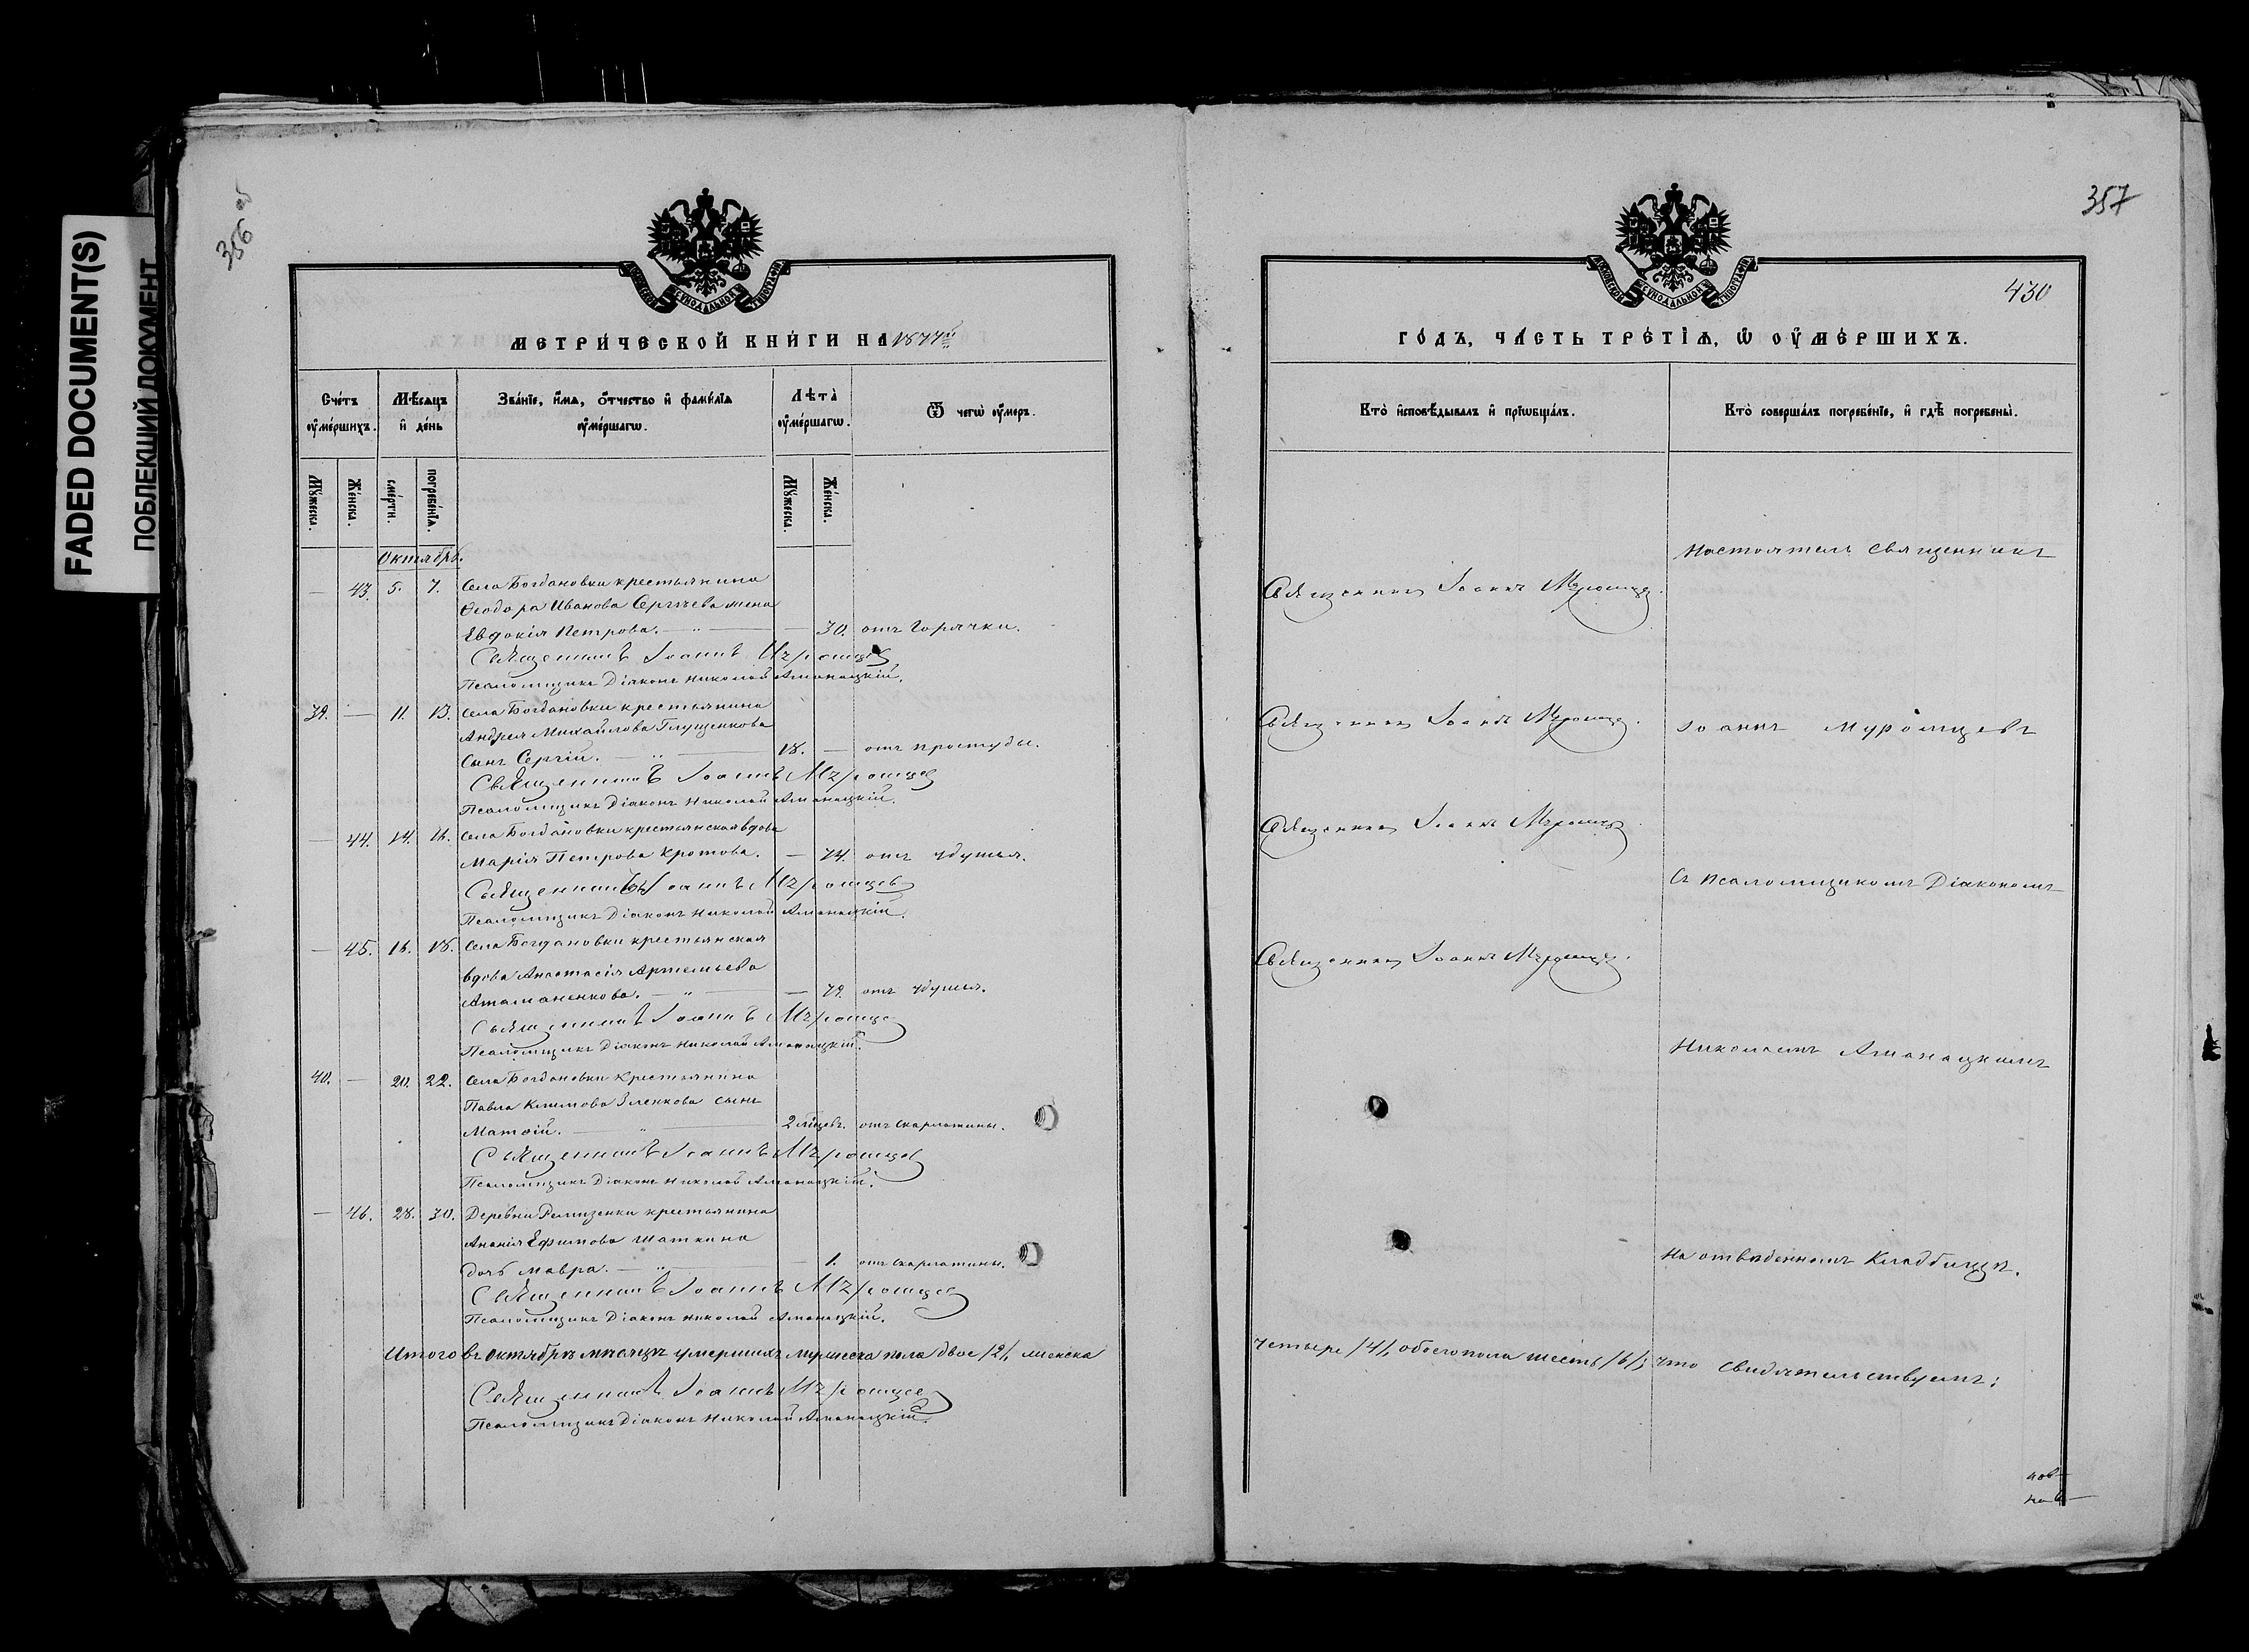 FADED DOCUMENT(S)
ПОБЛЕКШИЙ ДОКУМЕНТ
356 об
МЕТРИЧЕСКОЙ КНИГИ НА 1877й
Счетъ оумершихъ.
Мѣсяцъ и день
Званіе, имя, отчество и фамилія оумершагѡ.
Лѣта оумершагѡ.
Ѿ чегѡ оумеръ.
Мужеска.
Женска.
смерти.
погребенія.
Мужеска.
Женска.
Октябрь.
— 43. 5. 7. Села Богдановки крестьянина
Ѳеодора Иванова Сергѣева жена
Евдокія Петрова. — 30. отъ горячки.
Священникъ Іоаннъ Муромцевъ
Псаломщикъ Діаконъ Николай Аманацкій.
39. — 11. 13. Села Богдановки крестьянина
Андрея Михайлова Глущенкова
сынъ Сергій. 18. — отъ простуды.
Священникъ Іоаннъ Муромцевъ
Псаломщикъ Діаконъ Николай Аманацкій.
— 44. 14. 16. Села Богдановки крестьянская вдова
Марія Петрова Кротова. — 74. отъ удушья.
Священникъ Іоаннъ Муромцевъ
Псаломщикъ Діаконъ Николай Аманацкій.
— 45. 16. 18. Села Богдановки крестьянская
вдова Анастасія Артемьева
Атаманенкова. — 79. отъ удушья.
Священникъ Іоаннъ Муромцевъ
Псаломщикъ Діаконъ Николай Аманацкій.
40. — 20. 22. Села Богдановки крестьянина
Павла Климова Зленкова сынъ
Матѳій. 2 мѣсцевъ. отъ скарлатины.
Священникъ Іоаннъ Муромцевъ
Псаломщикъ Діаконъ Николай Аманацкій.
— 46. 28. 30. Деревни Ремизенки крестьянина
Ананія Ефимова Шаткина
дочь Мавра. — 1. отъ скарлатины.
Священникъ Іоаннъ Муромцевъ
Псаломщикъ Діаконъ Николай Аманацкій.
Итого въ октябрѣ мѣсяцѣ умершихъ мужеска пола двое /2/, женска
Священникъ Іоаннъ Муромцевъ
Псаломщикъ Діаконъ Николай Аманацкій.
357
430
ГОДЪ, ЧАСТЬ ТРЕТІЯ, Ѡ ОУМЕРШИХЪ.
Кто исповѣдывалъ и пріѡбщалъ.
Кто совершалъ погребеніе, и гдѣ погребены.
Настоятель священникъ
Священникъ Іоаннъ Муромцевъ.
Священникъ Іоаннъ Муромцевъ.
Іоаннъ Муромцевъ
Священникъ Іоаннъ Муромцевъ
Съ псаломщикомъ Діакономъ
Священникъ Іоаннъ Муромцевъ.
Николаемъ Аманацкимъ
На отведенномъ кладбищѣ.
четыре /4/, обоего пола шесть /6/; что свидѣтельствуемъ: